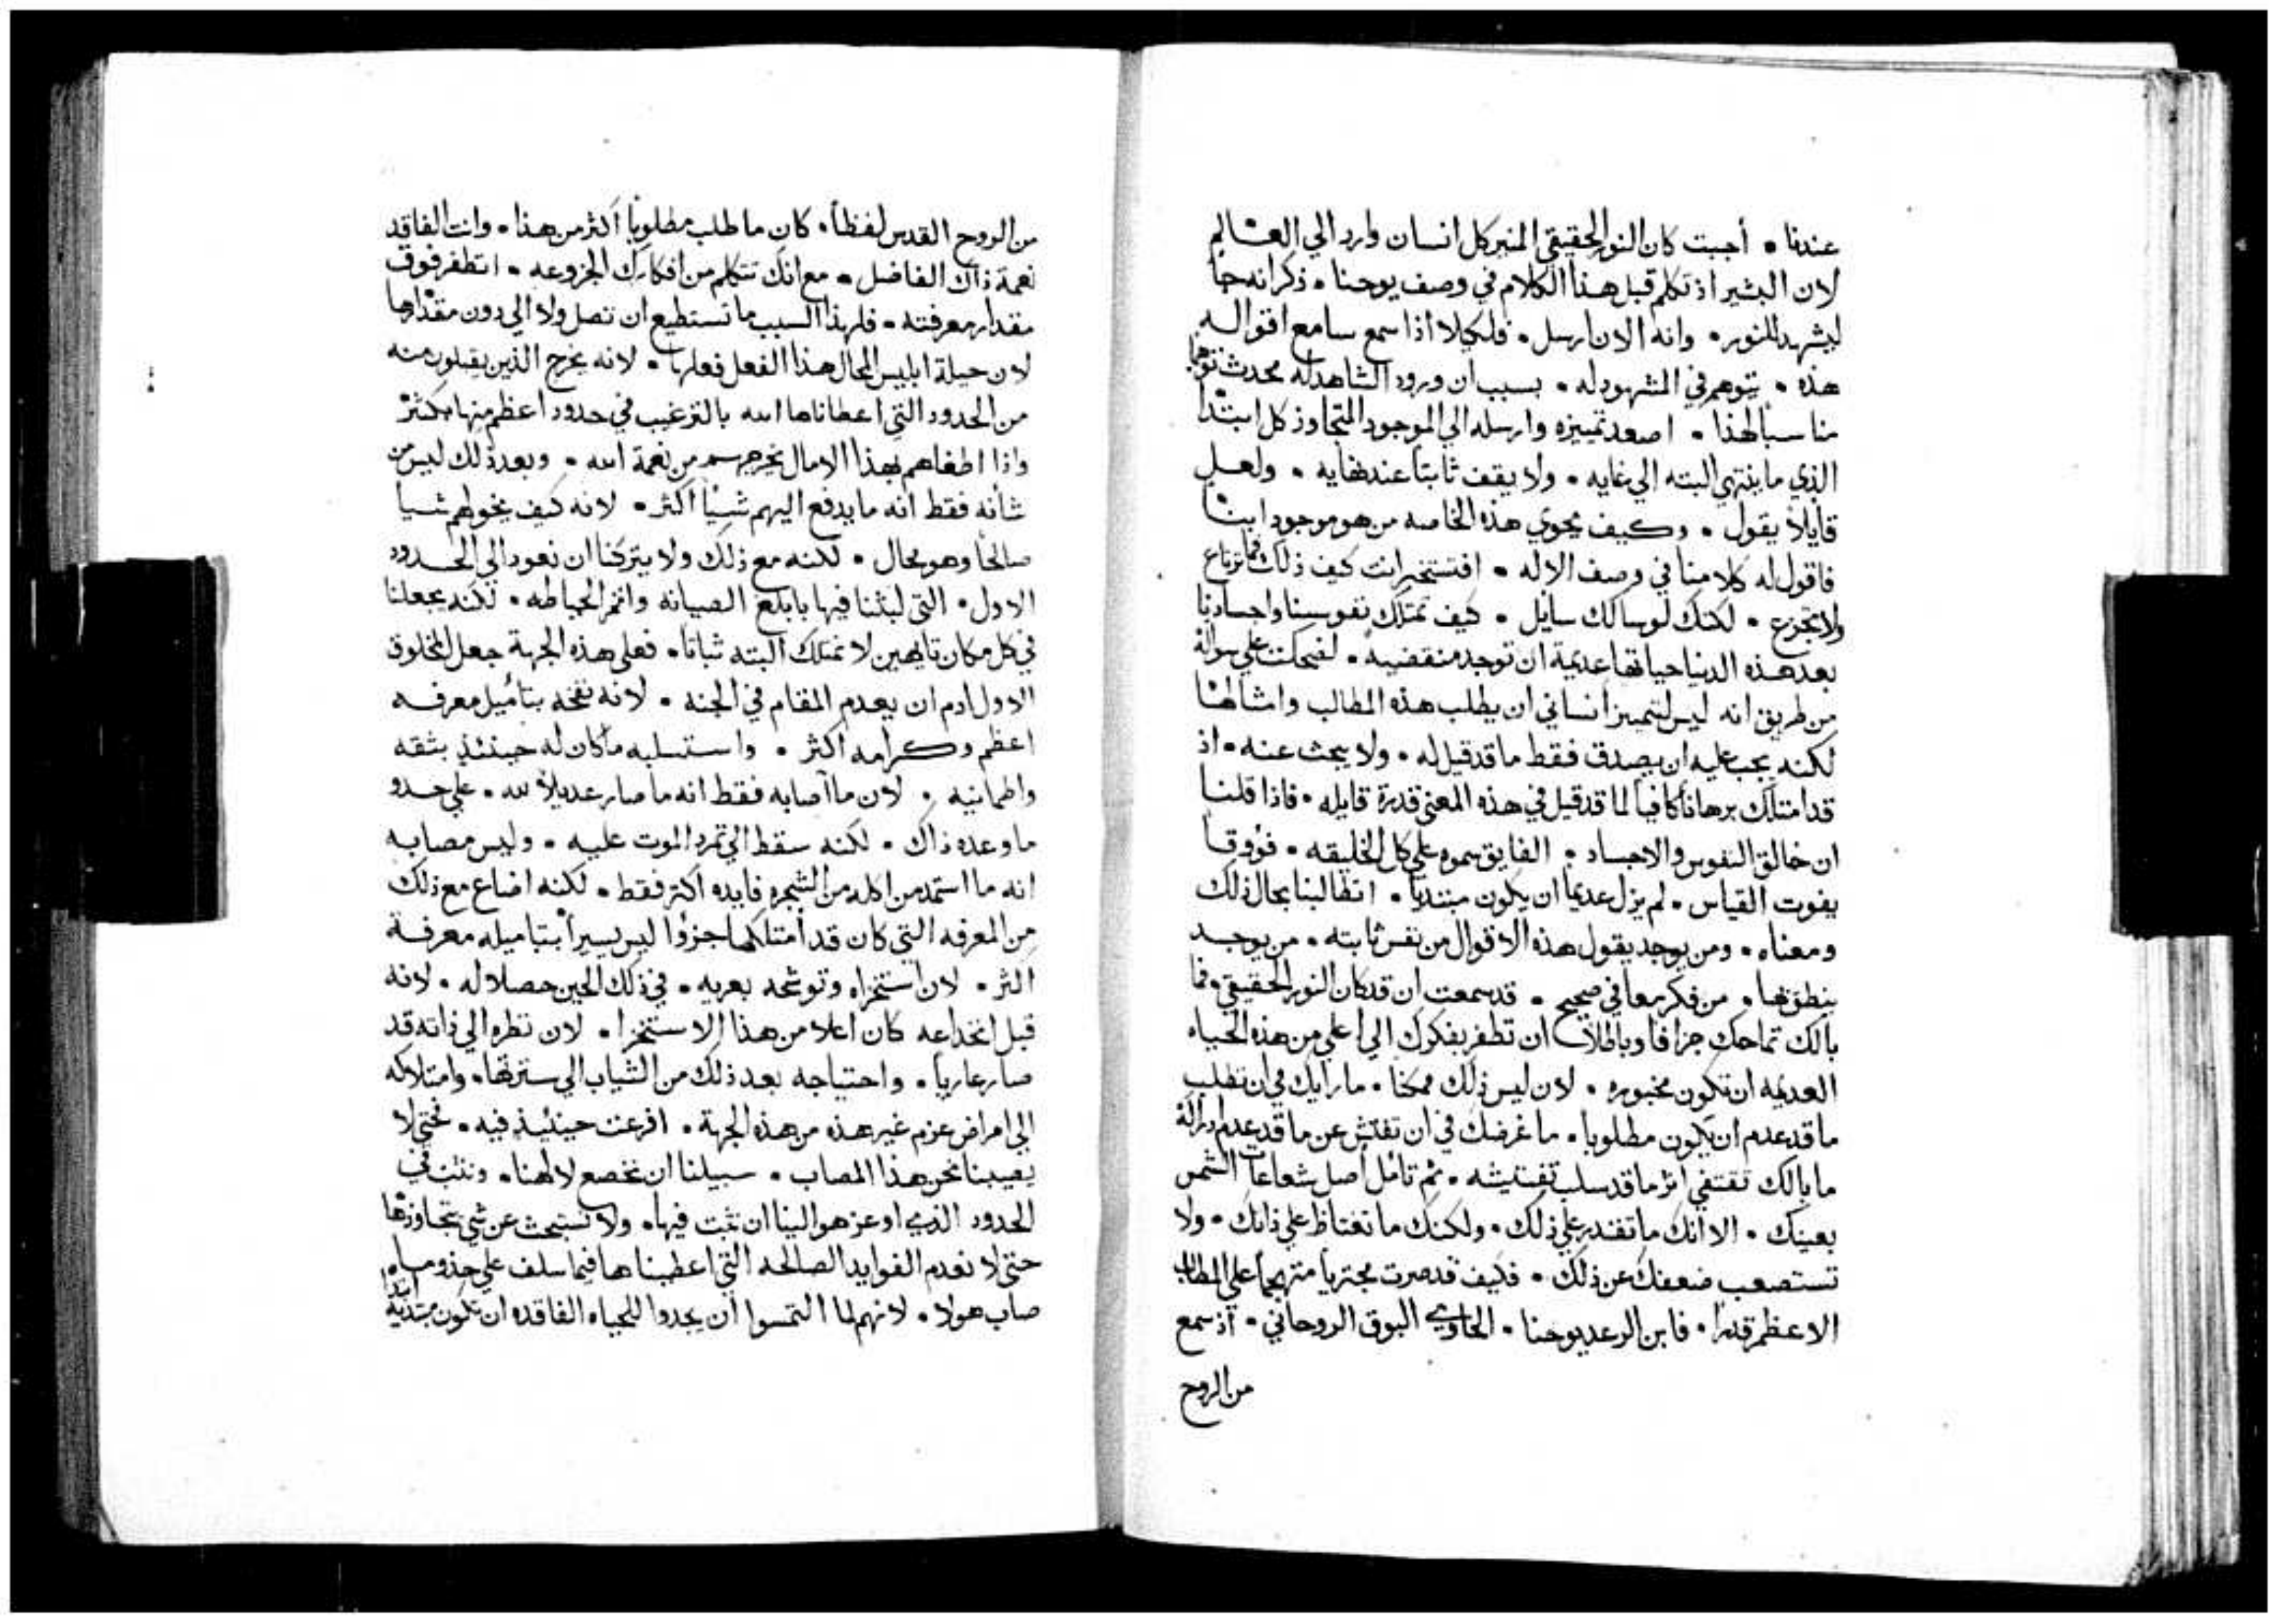 عندنا • أجبت كان النور الحقيقي المنير كل انسان وارد الي العالم
لان البشير اذ تكلم قبل هذا الكلام في وصف يوحنا • ذكر انه جا
ليشهد للنور • وانه الان ارسل • فلكيلا اذا سمع سامع اقواله
هذه • يتوهم في المشهود له • بسبب ان ورود الشاهد له محدث توهما
مناسبا لهذا • اصعد تمييزه وارسله الي الموجود المتجاوز كل ابتدا
الذي ما ينتهي البته الي غايه • ولا يقف ثابتا عند نهايه • ولعل
قايلا يقول • وكيف يحوي هذه الخاصه من هو موجود ابنا
فاقول له كلامنا في وصف الاله • افتستخبر انت كيف ذلك فما ترتاع
ولا تجزع • لكنك لو سالك سايل • كيف تمتلك نفوسنا واجسادنا
بعد هذه الدنيا حياتها عديمة ان توجد منقضيه • لضحكت علي سواله
من طريق انه ليس لتمييز انساني ان يطلب هذه المطالب وامثالها
لكنه يجب عليه ان يصدق فقط ما قد قيل له • ولا يبحث عنه • اذ
قد امتلك برهانا كافيا لما قد قيل في هذه المعني قدرة قايله • فاذا قلنا
ان خالق النفوس والاجساد • الفايق سموه علي كل الخليقه • فؤوقا
يفوت القياس • لم يزل عديما ان يكون مبتديا • اتطالبنا بحال ذلك
ومعناه • ومن يوجد يقول هذه الاقوال من نفس ثابته • من يوجد
ينطق بها • من فكر معافي صحيح • قد سمعت ان قد كان النور الحقيقي • فما
بالك تماحك جزافا وباطلا ان تظفر بفكرك الي اعلي من هذه الحياه
العديمه ان تكون مخبوره • لان ليس ذلك ممكنا • ما رايك في ان تطلب
ما قد عدم ان يكون مطلوبا • ما غرضك في ان تفتش عن ما قد عدم ادراكه
ما بالك تقتفي اثر ما قد سلب تفتيشه • ثم تامل اصل شعاعات الشمس
بعينك • الا انك ما تقتدر علي ذلك • ولكنك ما تغتاظ علي ذاتك • ولا
تستصعب ضعفك عن ذلك • فكيف قد صرت مجتريا متهجما علي المطالب
الاعظم قدرا • فابن الرعد يوحنا • الحاوي البوق الروحاني • اذ سمع
من الروح
من الروح القدس لفظا • كان ما طلب مطلوبا اكثر من هذا • وانت الفاقد
نعمة ذاك الفاضل • مع انك تتكلم من افكارك الجزوعه • اتطفر فوق
مقدار معرفته • فلهذا السبب ما تستطيع ان تصل ولا الي دون مقدارها
لان حيلة ابليس المحال هذا الفعل فعلها • لانه يخرج الذين يقبلون منه
من الحدود التي اعطاناها الله بالترغيب في حدود اعظم منها بكثر
واذا اطغاهم بهذا الامال يخرجهم من نعمة الله • وبعد ذلك ليس من
شانه فقط انه ما يدفع اليهم شيا اكثر • لانه كيف يخولهم شيا
صالحا وهو محال • لكنه مع ذلك ولا يتركنا ان نعود الي الحدود
الاول • التي لبثنا فيها بابلغ الصيانه واتم الحياطه • لكنه يجعلنا
في كل مكان تايهين لا نمتلك البته ثباتا • فعلي هذه الجهة جعل المخلوق
الاول ادم ان يعدم المقام في الجنه • لانه نفخه بتاميل معرفه
اعظم وكرامه اكثر • واستسلبه ما كان له حينئذ بثقه
واطمانيه • لان ما اصابه فقط انه ما صار عديلا لله • علي حدو
ما وعده ذاك • لكنه سقط الي تمرد الموت عليه • وليس مصابه
انه ما استمد من اكله من الشجره فايده اكثر فقط • لكنه اضاع مع ذلك
من المعرفه التي كان قد امتلكها جزوا ليس يسيرا بتاميله معرفة
اكثر • لان استخزاه وتوشحه بعريه • في ذلك الحين حصلا له • لانه
قبل انخداعه كان اعلا من هذا الاستخزا • لان نظره الي ذاته قد
صار عاريا • واحتياجه بعد ذلك من الثياب الي سترتها • وامتلاكه
الي امراض عزم غير هذه من هذه الجهة • افرعت حينئذ فيه • فحتي لا
يصيبنا نحن هذا المصاب • سبيلنا ان نخضع لالهنا • ونثبت في
الحدود الذي اوعز هو الينا ان نثبت فيها • ولا نستبحث عن شي يتجاوزها
حتي لا نعدم الفوايد الصالحه التي اعطيناها فيما سلف علي حذو ما
صاب هولا • لانهم لما التمسوا ان يجدوا للحياه الفاقده ان تكون مبتديه ابتدا